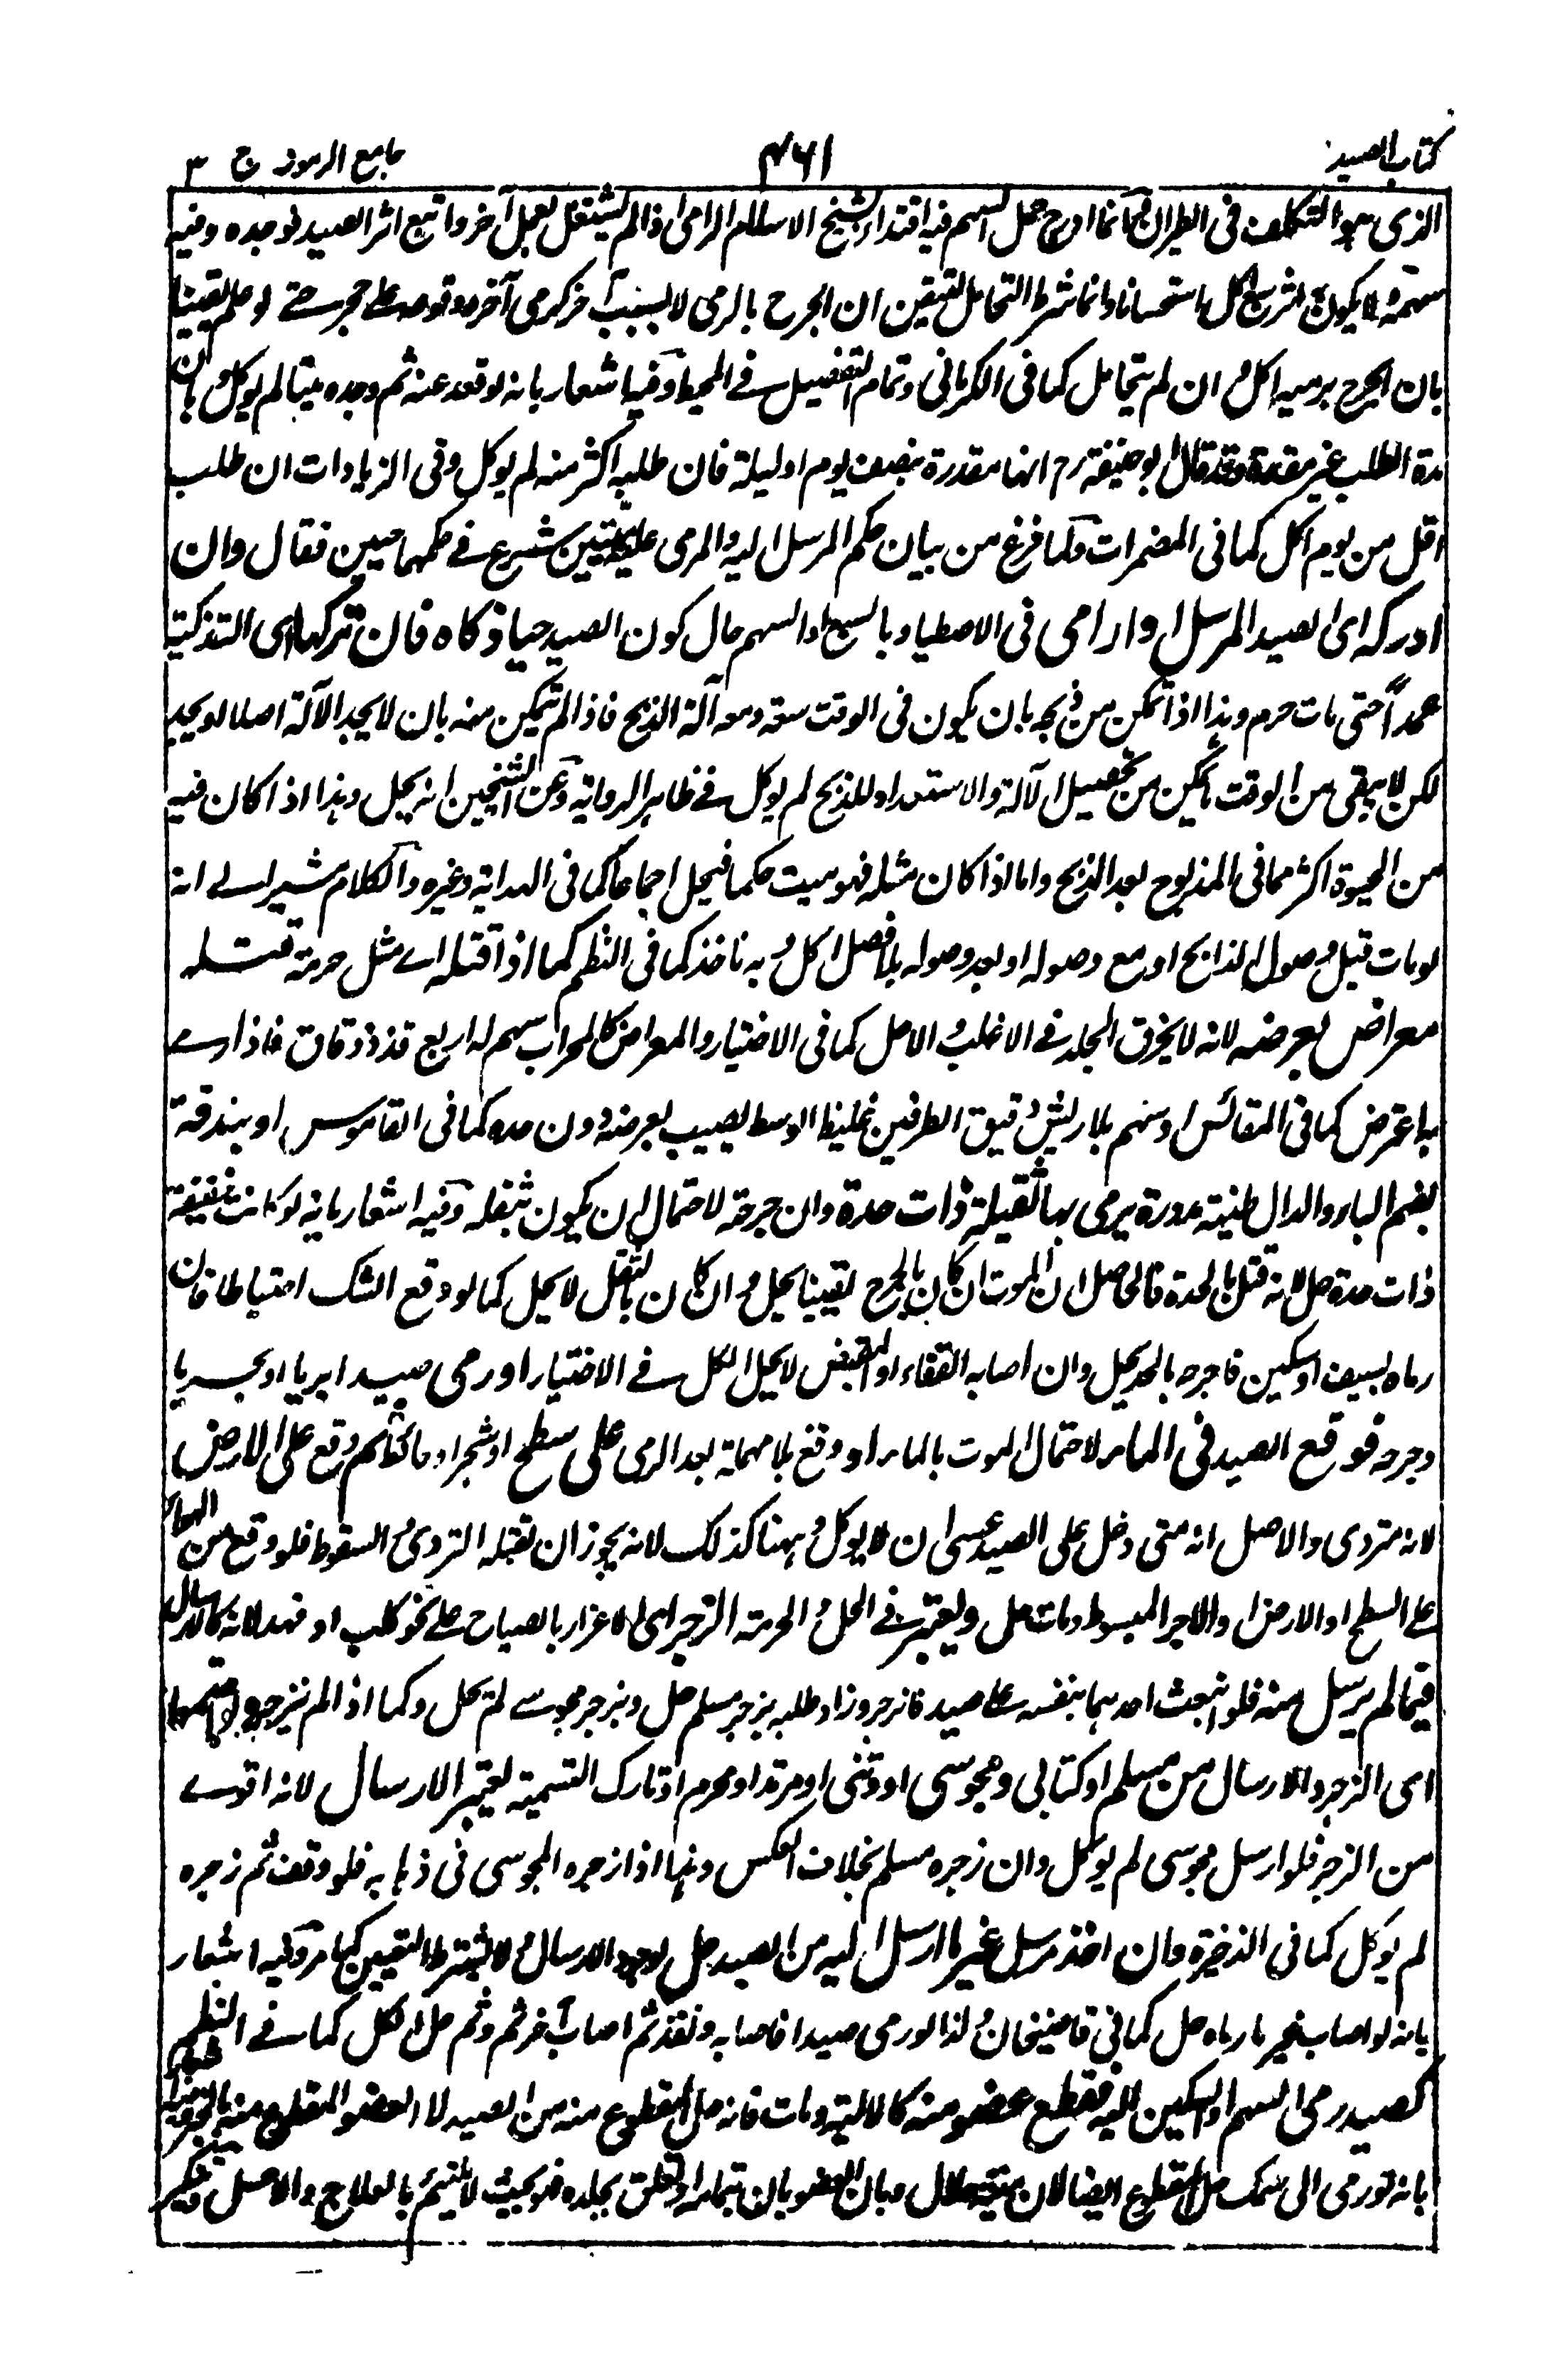 كتاب الصيد
۴۶۱
جامع الرموز ج ۳
الذى هو التكلف فى الطيران فكانما اوح حمل السهم فيه اقتداء لشيخ الاسلام الرامى اذا لم يشتغل بعمل آخر واتبع اثر الصيد فوجده وفيه
سهمه ولا يكون اثر سبع اكل استحسانا وانما شرط التحامل لتيقن ان الجرح بالرمى لا بسبب آخر كرمى آخر ووقوعه على حجر حتى لو علم يقينا
بان الجرح برميه اكل وان لم يتحامل كما فى الكرمانى وتمام التفصيل فى المحيط وفيه اشعار بانه لو قعد عنه ثم وجده ميتا لم يوكل وبان
مدة الطلب غير مقدرة وقد قال ابو حنيفة رح انها مقدرة بنصف يوم او ليلة فان طلبه اكثر منه لم يوكل وفى الزيادات ان طلب
اقل من يوم اكل كما فى المضمرات ولما فرغ من بيان حكم المرسل اليه والمرمى عليه ميتين شرع فى حكمهما حيين فقال وان
ادركه اى الصيد المرسل او الرامى فى الاصطياد بالسبع او السهم حال كون الصيد حيا ذكاه فان تركها اى التذكية
عمداً حتى مات حرم وهذا اذا تمكن من ذبحه بان يكون فى الوقت سعة ومعه آلة الذبح فاذا لم يتمكن منه بان لا يجد الآلة اصلا او يجد
لكن لا يبقى من الوقت ما يمكن من تحصيل الآلة والاستعداد للذبح لم يوكل فى ظاهر الرواية وعن الشيخين انه يحل وهذا اذا كان فيه
من الحيوة اكثر مما فى المذبوح بعد الذبح واما اذا كان مثله فهو ميت حكما فيحل اجماعا كما فى الهداية وغيره والكلام مشير الى انه
لو مات قبل وصول الذابح او مع وصوله او بعد وصوله بلا فصل اكل وبه ناخذ كما فى النظم كما اذا قتله اى مثل حرمة قتله
معراض بعرضه لانه لا يخرق الجلد فى الاغلب والاصل كما فى الاختيار والمعراض كالمحراب سهم له اربع قذذ دقاق فاذا رمى
به اعترض كما فى المقائس او سهم بلا ريش دقيق الطرفين غليظ الوسط يصيب بعرضه دون حده كما فى القاموس او بندقة
بضم الباء والدال طينة مدورة يرمى بها ثقيلة ذات حدة وان جرحته لاحتمال ان يكون بثقله وفيه اشعار بانه لو كانت خفيفة
ذات حدة حل لانه قتل بالحدة فالحاصل ان الموت ان كان بالجرح يقينا يحل وان كان بالثقل لا يحل كما لو وقع الشك احتياطا فان
رماه بسيف او سكين فاجرحه بالحد يحل وان اصابه القفاء او المقبض لا يحل الكل فى الاختيار او رمى صيدا بريا او بحريا
وجرحه فوقع الصيد فى الماء لاحتمال الموت بالماء او وقع بلا مهملة بعد الرمى على سطح او شجر او حائط ثم وقع على الارض
لانه متردى والاصل انه متى دخل على الصيد عسى ان لا يوكل وههنا كذلك لانه يجوز ان تقتله التردى والسقوط فلو وقع من الهواء
على السطح او الارض او الآجر المبسوط ومات حل ويعتبر فى الحل والحرمة الزجر اى الاغراء بالصياح على نحو كلب او فهد لانه كالارسال
فيما لم يرسل منه فلو انبعث احدهما بنفسه على صيد فانزجر وزاد طلبه بزجر مسلم حل وبزجر مجوسى لم تحل وكما اذا لم ينزجر
اى الزجر والارسال من مسلم او كتابى ومجوسى او وثنى او مرتد او محرم او تارك التسمية يعتبر الارسال لانه اقوى
من الزجر فلو ارسل مجوسى لم يوكل وان زجره مسلم بخلاف العكس وهذا اذا زجره المجوسى فى ذهابه فلو وقف ثم زجره
لم يوكل كما فى الذخيرة وان اخذ مرسل غير ما ارسل اليه من الصيد حل لوجود الارسال ولا يشترط التعيين كما مر وفيه اشعار
بانه لو اصاب غير ما رماه حل كما فى قاضيخان ولذا لو رمى صيدا فاصابه ونفذ ثم اصاب آخر ثم وثم حل الكل كما فى النظم
كصيد رمى السهم او السكين اليه فقطع عضو منه كالالية ومات فانه حل المقطوع منه من الصيد لا العضو المقطوع منه
بانه لو رمى الى سمك حل المقطوع ايضا لان ميتته حلال وبان العضو بان بتمامه او تعلق بجلده فهو بحيث لا يلتئم بالعلاج والاصل